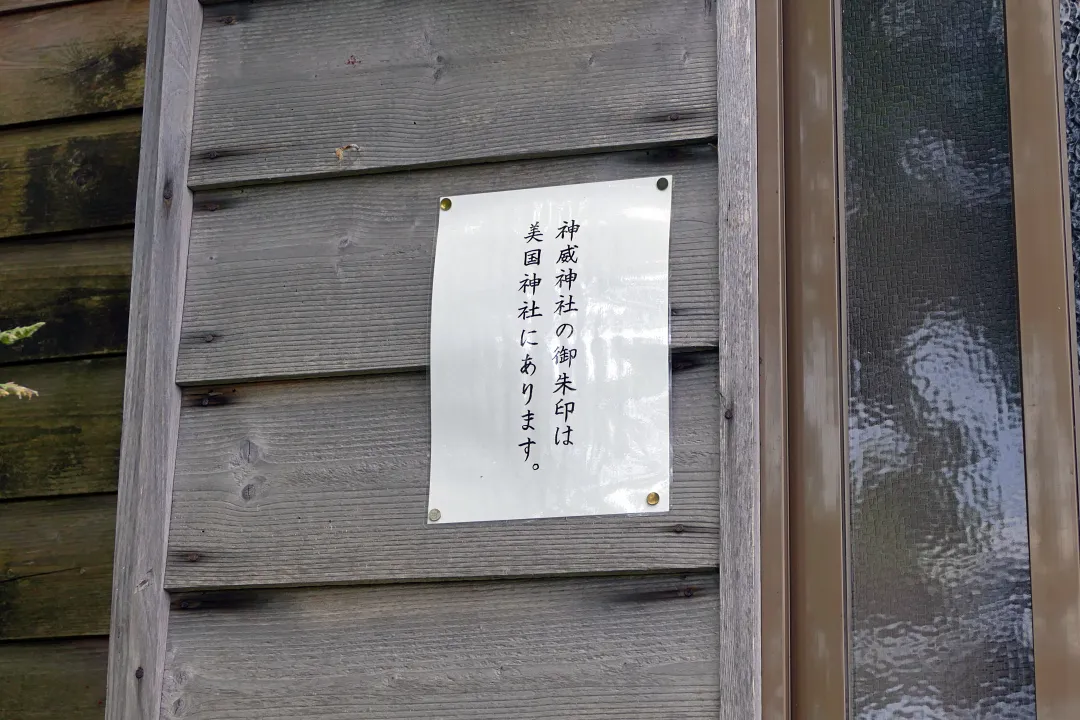 神威神社の御朱印は
美国神社にあります。